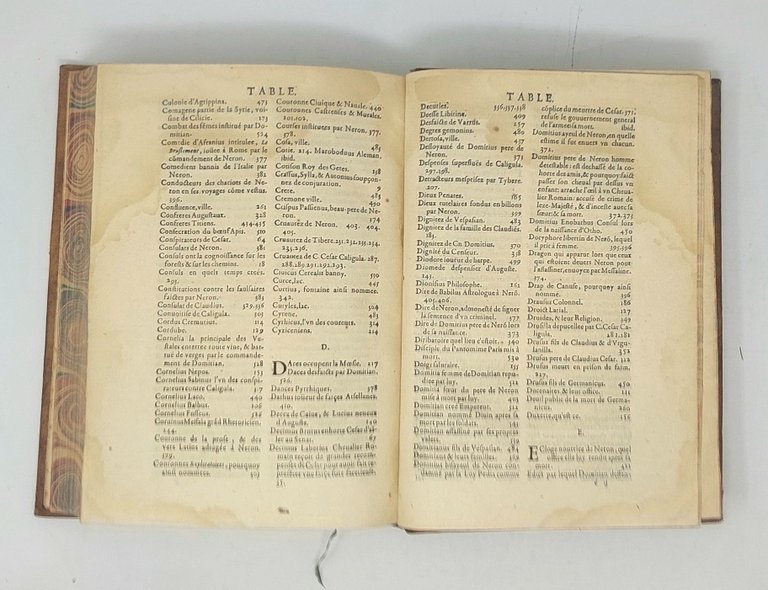 TABLE.
Colonie d'Agrippina. 473
Comagene partie de la Syrie, voi-
sine de Cilicie. 173
Combat des fẽmes institué par Do-
mitian. 524
Comedie d'Afranius intitulee, Le
Bruslement, iouee à Rome par le
cõmandement de Neron. 377
Comediens bannis de l'Italie par
Neron. 382
Conducteurs des chariots de Ne-
ron en ses voyages cõme vestus.
396.
Confluence, ville. 261
Confreres Augustaux. 328
Confreres Titiens. 454-455
Consecration du bœuf Apis. 510
Conspirateurs de Cesar. 64
Consulars de Neron. 581
Consuls ont la cognoissance sur les
forests & sur les chemins. 18
Consuls en quels temps creés.
205.
Constitutions contre les faulsaires
faictes par Neron. 383
Consular de Claudius. 329.556
Conuoitise de Caligula. 505
Cordus Cremutius. 114
Cordube. 129
Cornelia la principale des Ve-
stales enterree toute viue, & bat-
tuë de verges par le commande-
ment de Domitian. 528
Cornelius Nepos. 155
Cornelius Sabinus l'vn des conspi-
rateurs contre Caligula. 317
Cornelius Laco. 440
Cornelius Balbus. 106
Cornelius Fuscus. 526
Coruinus Messala grãd Rhetoricien.
144.
Couronne de la prose, & des
vers Latins adiugée à Neron.
379.
Couronnes Exploratoires, pourquoy
ainsi nommees. 303
Couronne Ciuique & Nauale. 440
Couronnes Castrenses & Murales.
201.202.
Courses instituees par Neron. 377.
378.
Cosa, ville. 483
Cotie. 214. Maroboduus Aleman,
ibid.
Cotison Roy des Getes. 138
Crassus, Sylla, & Autonius soupçon-
nez de conjuration. 9
Crete. 483
Cremone ville. 450
Crispus Passienus, beau-pere de Ne-
ron. 374
Cruautez de Neron. 403. 404.
405.
Cruautez de Tibere. 251.252.253.254.
234.236.
Cruautez de C. Cesar Caligula. 287.
288.289.291.292.293.
Ciuicus Cerealis banny. 530
Curce, lac. 145
Curtius, fontaine ainsi nommee.
342.
Cutyles, lac. 504
Cyrene. 483
Cythicus, l'vn des coureurs. 314
Cyziceniens. 214
D.
DAces occupent la Mœsie. 117
Daces desfaicts par Domitian.
526.
Dances Pyrrhiques. 378
Dathus ioüeur de farces Atellanes.
410.
Decimus Brutus enhorte Cesar d'al-
ler au Senat. 67
Decimus Laberius Cheualier Ro-
main
TABLE.
Decuries. 336.337.338
Deesse Libitine. 409
Desfaicte de Varrus. 257
Degrez gemonins. 480
Dertosa, ville. 437
Desloyauté de Domitius pere de
Neron. 371
Despenses superfluës de Caligula.
297.298.
Detracteurs mesprisez par Tybere.
207.
Dieux Penates. 165
Dieux tutelaires fondus en billons
par Neron. 399
Dignitez de Vespasian. 483
Dignitez de la famille des Claudiés.
185.
Dignitez de Cn Domitius. 370
Dignité du Censeur. 338
Diodore ioueur de harpe. 499
Diomede despensier d'Auguste.
145.
Dionisius Philosophe. 161
Dire de Babilus Astrologue à Nerõ.
405.406.
Dire de Neron, admonesté de signer
la sentence d'vn criminel. 377
Dire de Domitius pere de Nerõ lors
de sa naissance. 373
Diribitoire quel lieu c'estoit. 340
Disciple du Pantomime Paris mis à
mort. 530
Doigt salutaire. 155
Domitia femme de Domitian repu-
diee par luy. 521
Domitia sœur du pere de Neron
mise à mort par luy. 403
Domitian creé Empereur. 521
Domitian nommé Diuin apres sa
mort par les soldats. 541
Domitian assassiné par ses propres
valets. 539
Domitianus fils de Vespasian. 484
Domitians & leurs familles. 369
cõplice du meurtre de Cesar. 371.
refuse le gouuernement general
de l'armee & sa mort. ibid.
Domitius ayeul de Neron, en quelle
estime il fut enuers vn chacun.
372.
Domitius pere de Neron homme
detestable: est dechassé de la co-
horte des amis, & pourquoy: faict
passer son cheual par dessus vn
enfant: arrache l'œil à vn Cheua-
lier Romain: accusé de crime de
leze-Majesté, & d'inceste auec sa
sœur: & sa mort. 372.373
Domitius Enobarbus Consul lors
de la naissance d'Otho. 450
Doryphore libertin de Nerõ, lequel
il prit à femme. 395.396
Dragon qui apparut lors que ceux
qui estoient deuers Neron pour
l'assassiner, enuoyez par Messaline.
374.
Drap de Canuse, pourquoy ainsi
nommé. 396
Drausus Colonnel. 186
Droict Latial. 127
Druides, & leur Religion. 349
Drusilla depucellee par C. Cesar Ca-
ligula. 282.283
Drusus fils de Claudius & d'Vrgu-
lanilla. 352
Drusus pere de Claudius Cesar. 322
Drusus meurt en prison de faim.
247.
Drusus fils de Germanicus. 260
Ducenaires, & leur office. 111
Dueil public de la mort de Germa-
nicus. 260
Duxerie, qu'est ce. 156
E.
ECloge nourrice de Neron, quel
office elle luy rendit apres sa
mort. 411